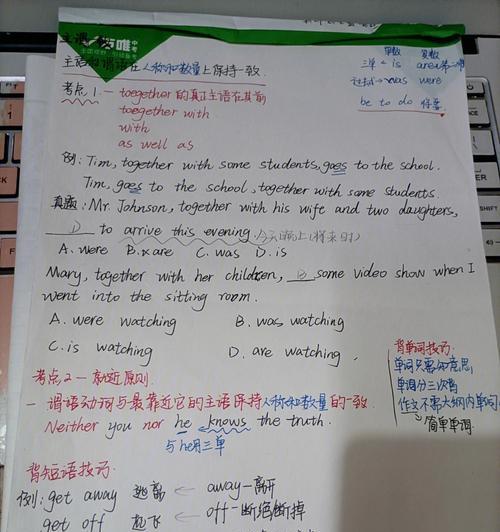 主谓一致
主语和谓语在人称和数量上保持一致.
单数 复数
三单 < is are
过去式→was were
be to do 将要
考点1. — toegether 的真正主语在其前
toegether with
with
as well as
例: Tim, together with some students, goes to the school.
Tim, goes to the school, together with some students.
真题: Mr. Johnson, together with his wife and two daughters,
D to arrive this evening. 今天晚上(将来时)
A. were B. are C. was D. is
Mary, together with her children, B some video show when I
went into the sitting room.
A. were watching B. was watching
C. is watching D. are watching.
考点2 — 就近原则.
— 谓语动词与最靠近它的主语保持人称和数量的一致.
Neither you nor he knows the truth.
与he用三单
背单词技巧.
单词只需知意思,
单词分三次背
作文不需大纲内单词
简单单词.
背短语技巧.
例: get away 逃离 ← away-离开
get off 起飞 ← off-断绝断掉